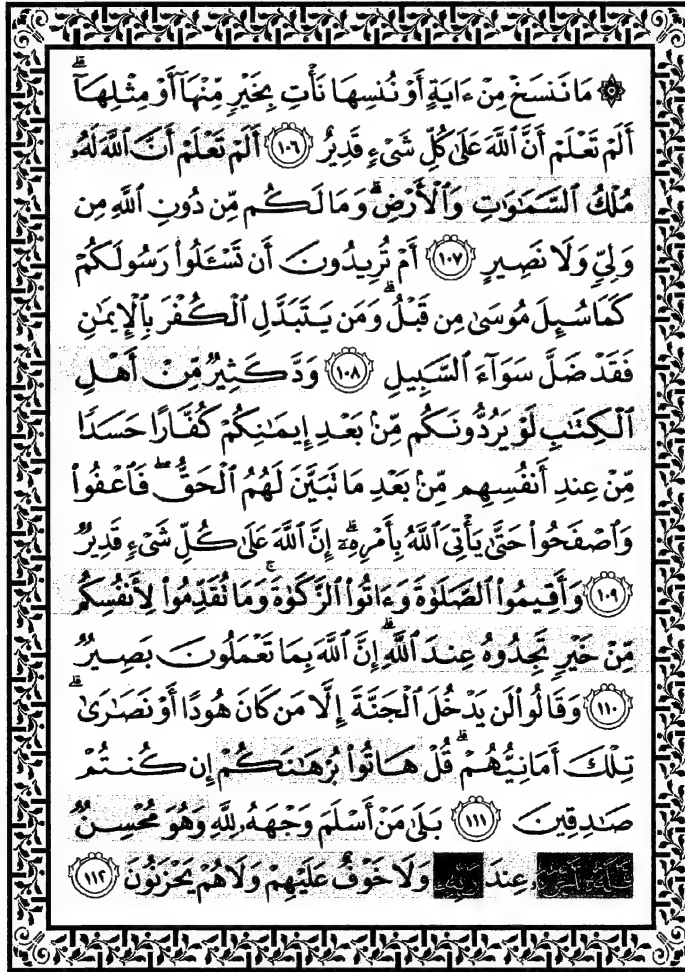 ۞ مَا نَنسَخْ مِنْ ءَايَةٍ أَوْ نُنسِهَا نَأْتِ بِخَيْرٍ مِّنْهَآ أَوْ مِثْلِهَآ ۗ
أَلَمْ تَعْلَمْ أَنَّ ٱللَّهَ عَلَىٰ كُلِّ شَىْءٍ قَدِيرٌ ١٠٦ أَلَمْ تَعْلَمْ أَنَّ ٱللَّهَ لَهُۥ
مُلْكُ ٱلسَّمَـٰوَٰتِ وَٱلْأَرْضِ ۗ وَمَا لَكُم مِّن دُونِ ٱللَّهِ مِن
وَلِىٍّ وَلَا نَصِيرٍ ١٠٧ أَمْ تُرِيدُونَ أَن تَسْـَٔلُوا۟ رَسُولَكُمْ
كَمَا سُئِلَ مُوسَىٰ مِن قَبْلُ ۗ وَمَن يَتَبَدَّلِ ٱلْكُفْرَ بِٱلْإِيمَـٰنِ
فَقَدْ ضَلَّ سَوَآءَ ٱلسَّبِيلِ ١٠٨ وَدَّ كَثِيرٌ مِّنْ أَهْلِ
ٱلْكِتَـٰبِ لَوْ يَرُدُّونَكُم مِّنۢ بَعْدِ إِيمَـٰنِكُمْ كُفَّارًا حَسَدًا
مِّنْ عِندِ أَنفُسِهِم مِّنۢ بَعْدِ مَا تَبَيَّنَ لَهُمُ ٱلْحَقُّ ۖ فَٱعْفُوا۟
وَٱصْفَحُوا۟ حَتَّىٰ يَأْتِىَ ٱللَّهُ بِأَمْرِهِۦٓ ۗ إِنَّ ٱللَّهَ عَلَىٰ كُلِّ شَىْءٍ قَدِيرٌ
١٠٩ وَأَقِيمُوا۟ ٱلصَّلَوٰةَ وَءَاتُوا۟ ٱلزَّكَوٰةَ ۚ وَمَا تُقَدِّمُوا۟ لِأَنفُسِكُم
مِّنْ خَيْرٍ تَجِدُوهُ عِندَ ٱللَّهِ ۗ إِنَّ ٱللَّهَ بِمَا تَعْمَلُونَ بَصِيرٌ
١١٠ وَقَالُوا۟ لَن يَدْخُلَ ٱلْجَنَّةَ إِلَّا مَن كَانَ هُودًا أَوْ نَصَـٰرَىٰ ۗ
تِلْكَ أَمَانِيُّهُمْ ۗ قُلْ هَاتُوا۟ بُرْهَـٰنَكُمْ إِن كُنتُمْ
صَـٰدِقِينَ ١١١ بَلَىٰ مَنْ أَسْلَمَ وَجْهَهُۥ لِلَّهِ وَهُوَ مُحْسِنٌ
عِندَ وَلَا خَوْفٌ عَلَيْهِمْ وَلَا هُمْ يَحْزَنُونَ ١١٢